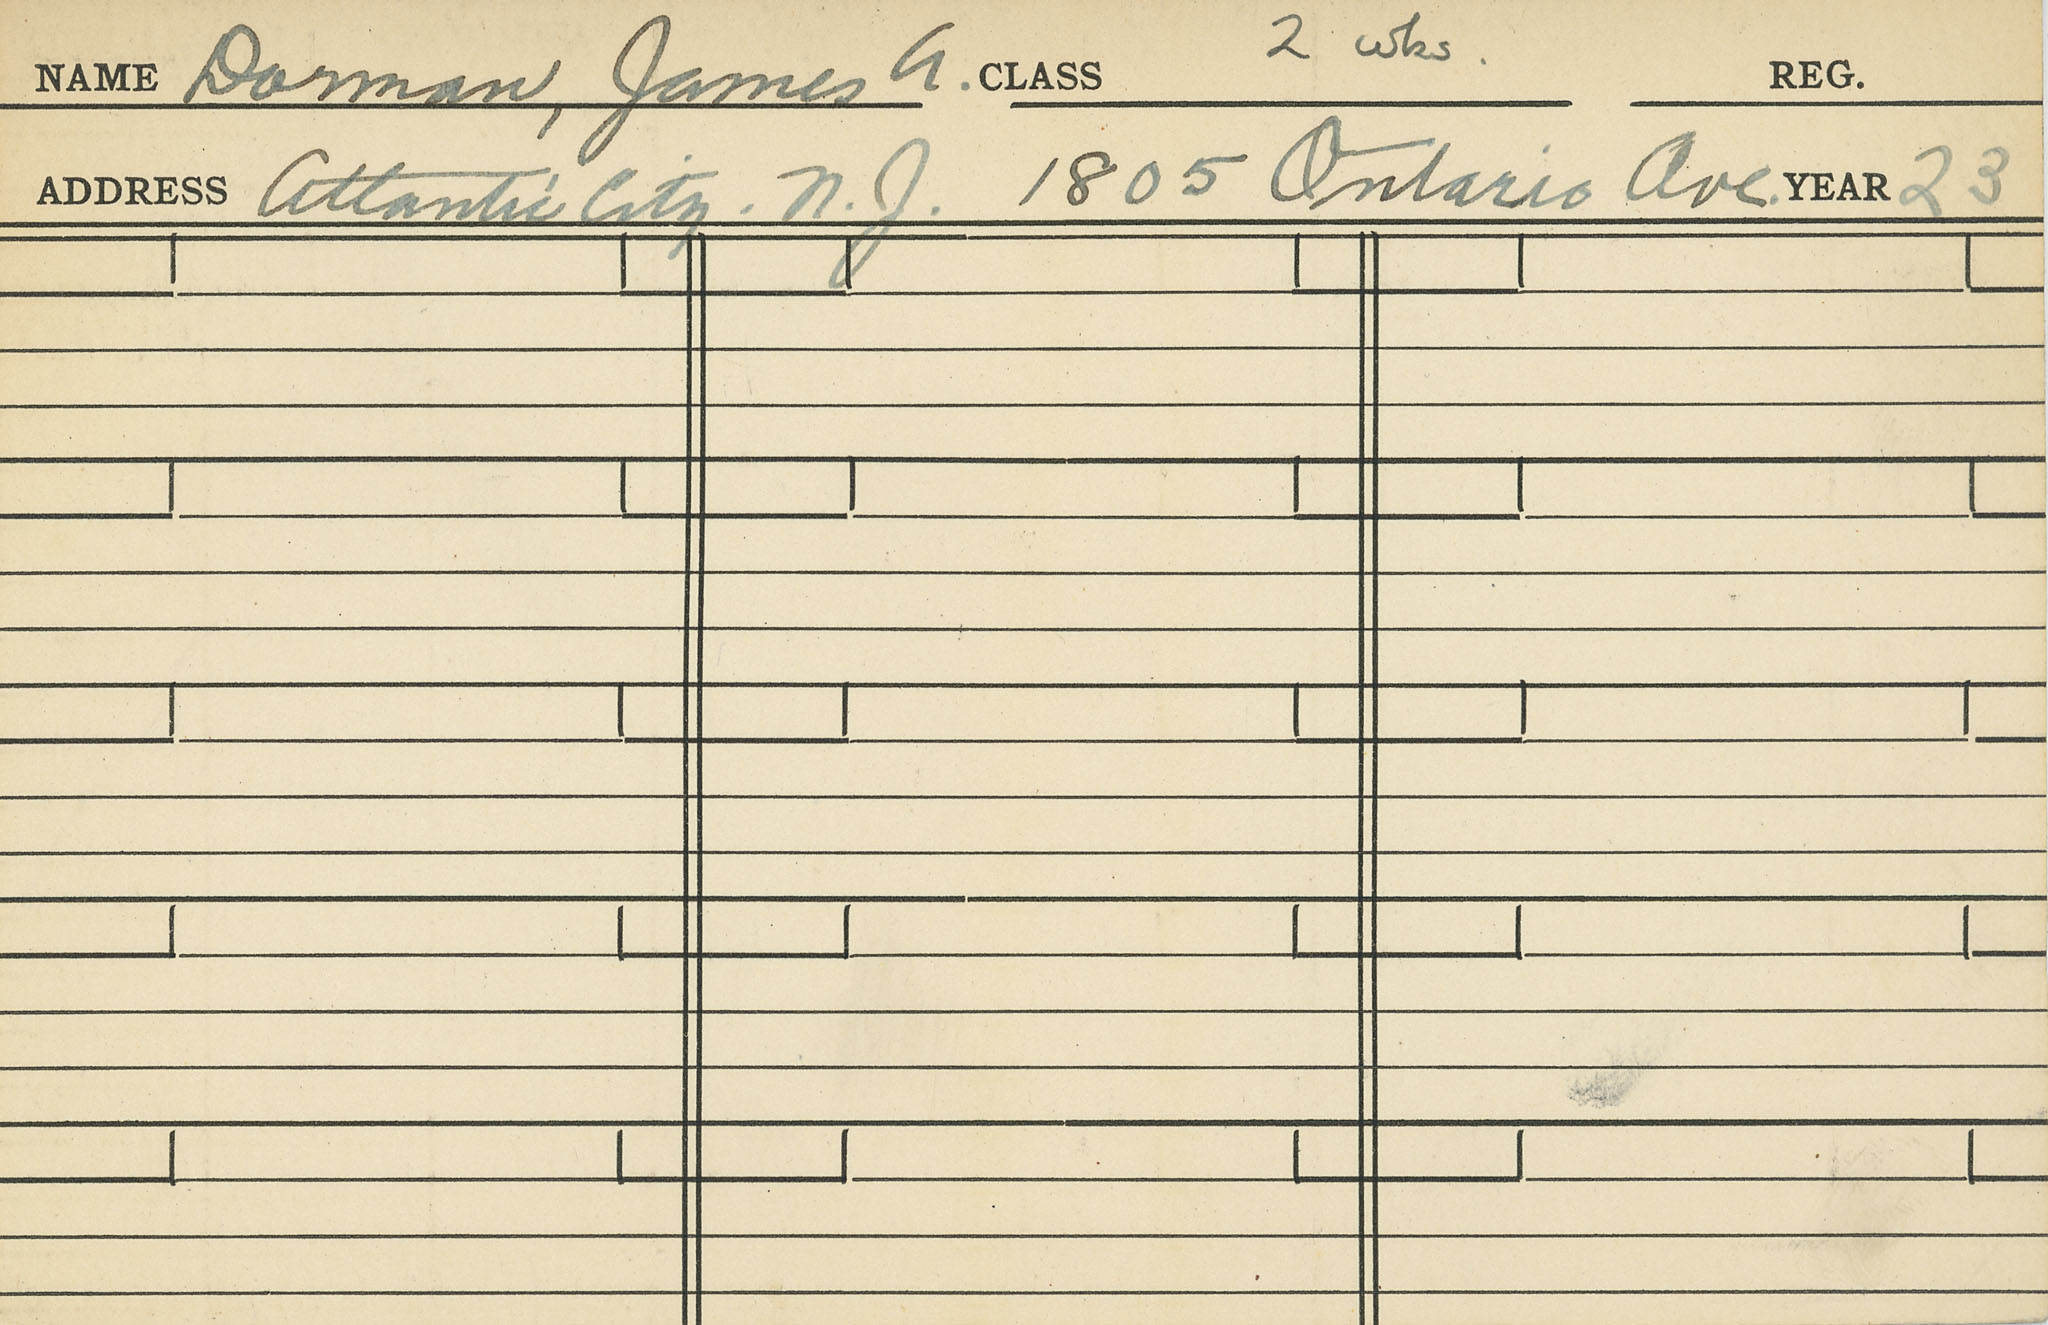 NAME Dorman, James A. CLASS 2 wks. REG.
ADDRESS Atlantic City. N.J. 1805 Ontario Ave. YEAR 23